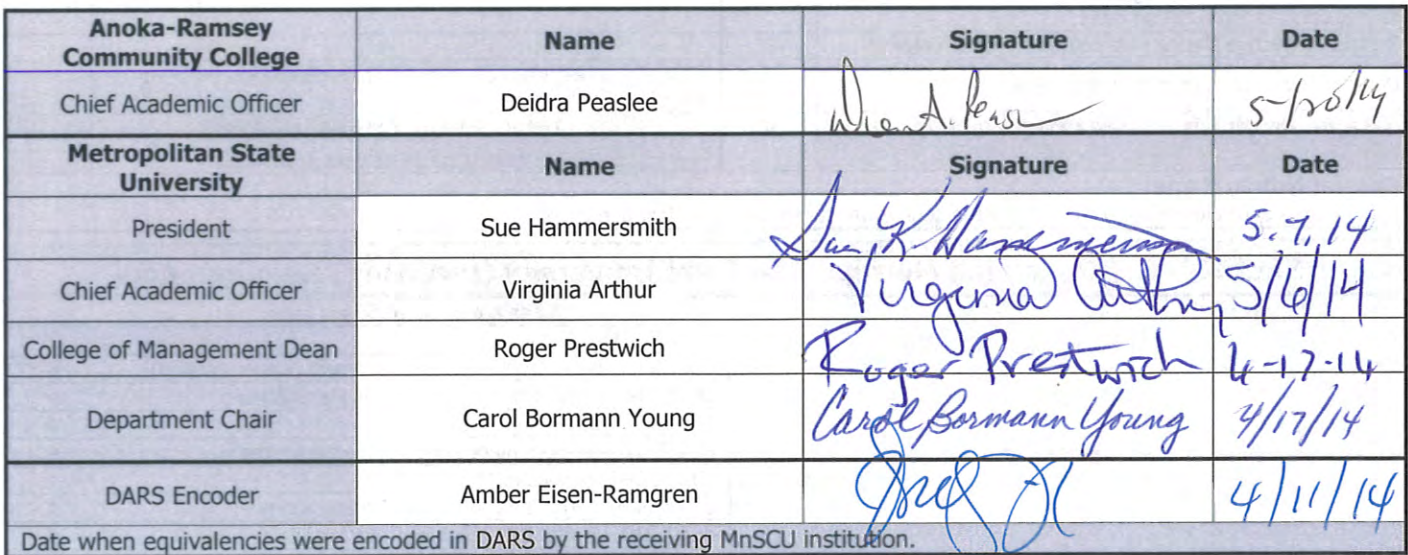 Anoka-Ramsey Community College Name Signature Date
Chief Academic Officer Deidra Peaslee 5/20/14
Metropolitan State University Name Signature Date
President Sue Hammersmith Sue K Hammersmith 5.7.14
Chief Academic Officer Virginia Arthur Virginia Arthur 5/6/14
College of Management Dean Roger Prestwich Roger Prestwich 4-17-14
Department Chair Carol Bormann Young Carol Bormann Young 4/17/14
DARS Encoder Amber Eisen-Ramgren 4/11/14
Date when equivalencies were encoded in DARS by the receiving MnSCU institution.